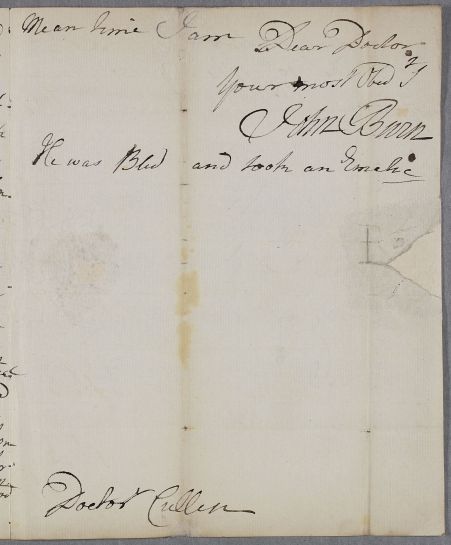 Mean time I am Dear Doctor
Your most Obed.t S
John Burn
He was Bled and took an Emetic
Doctor Cullen